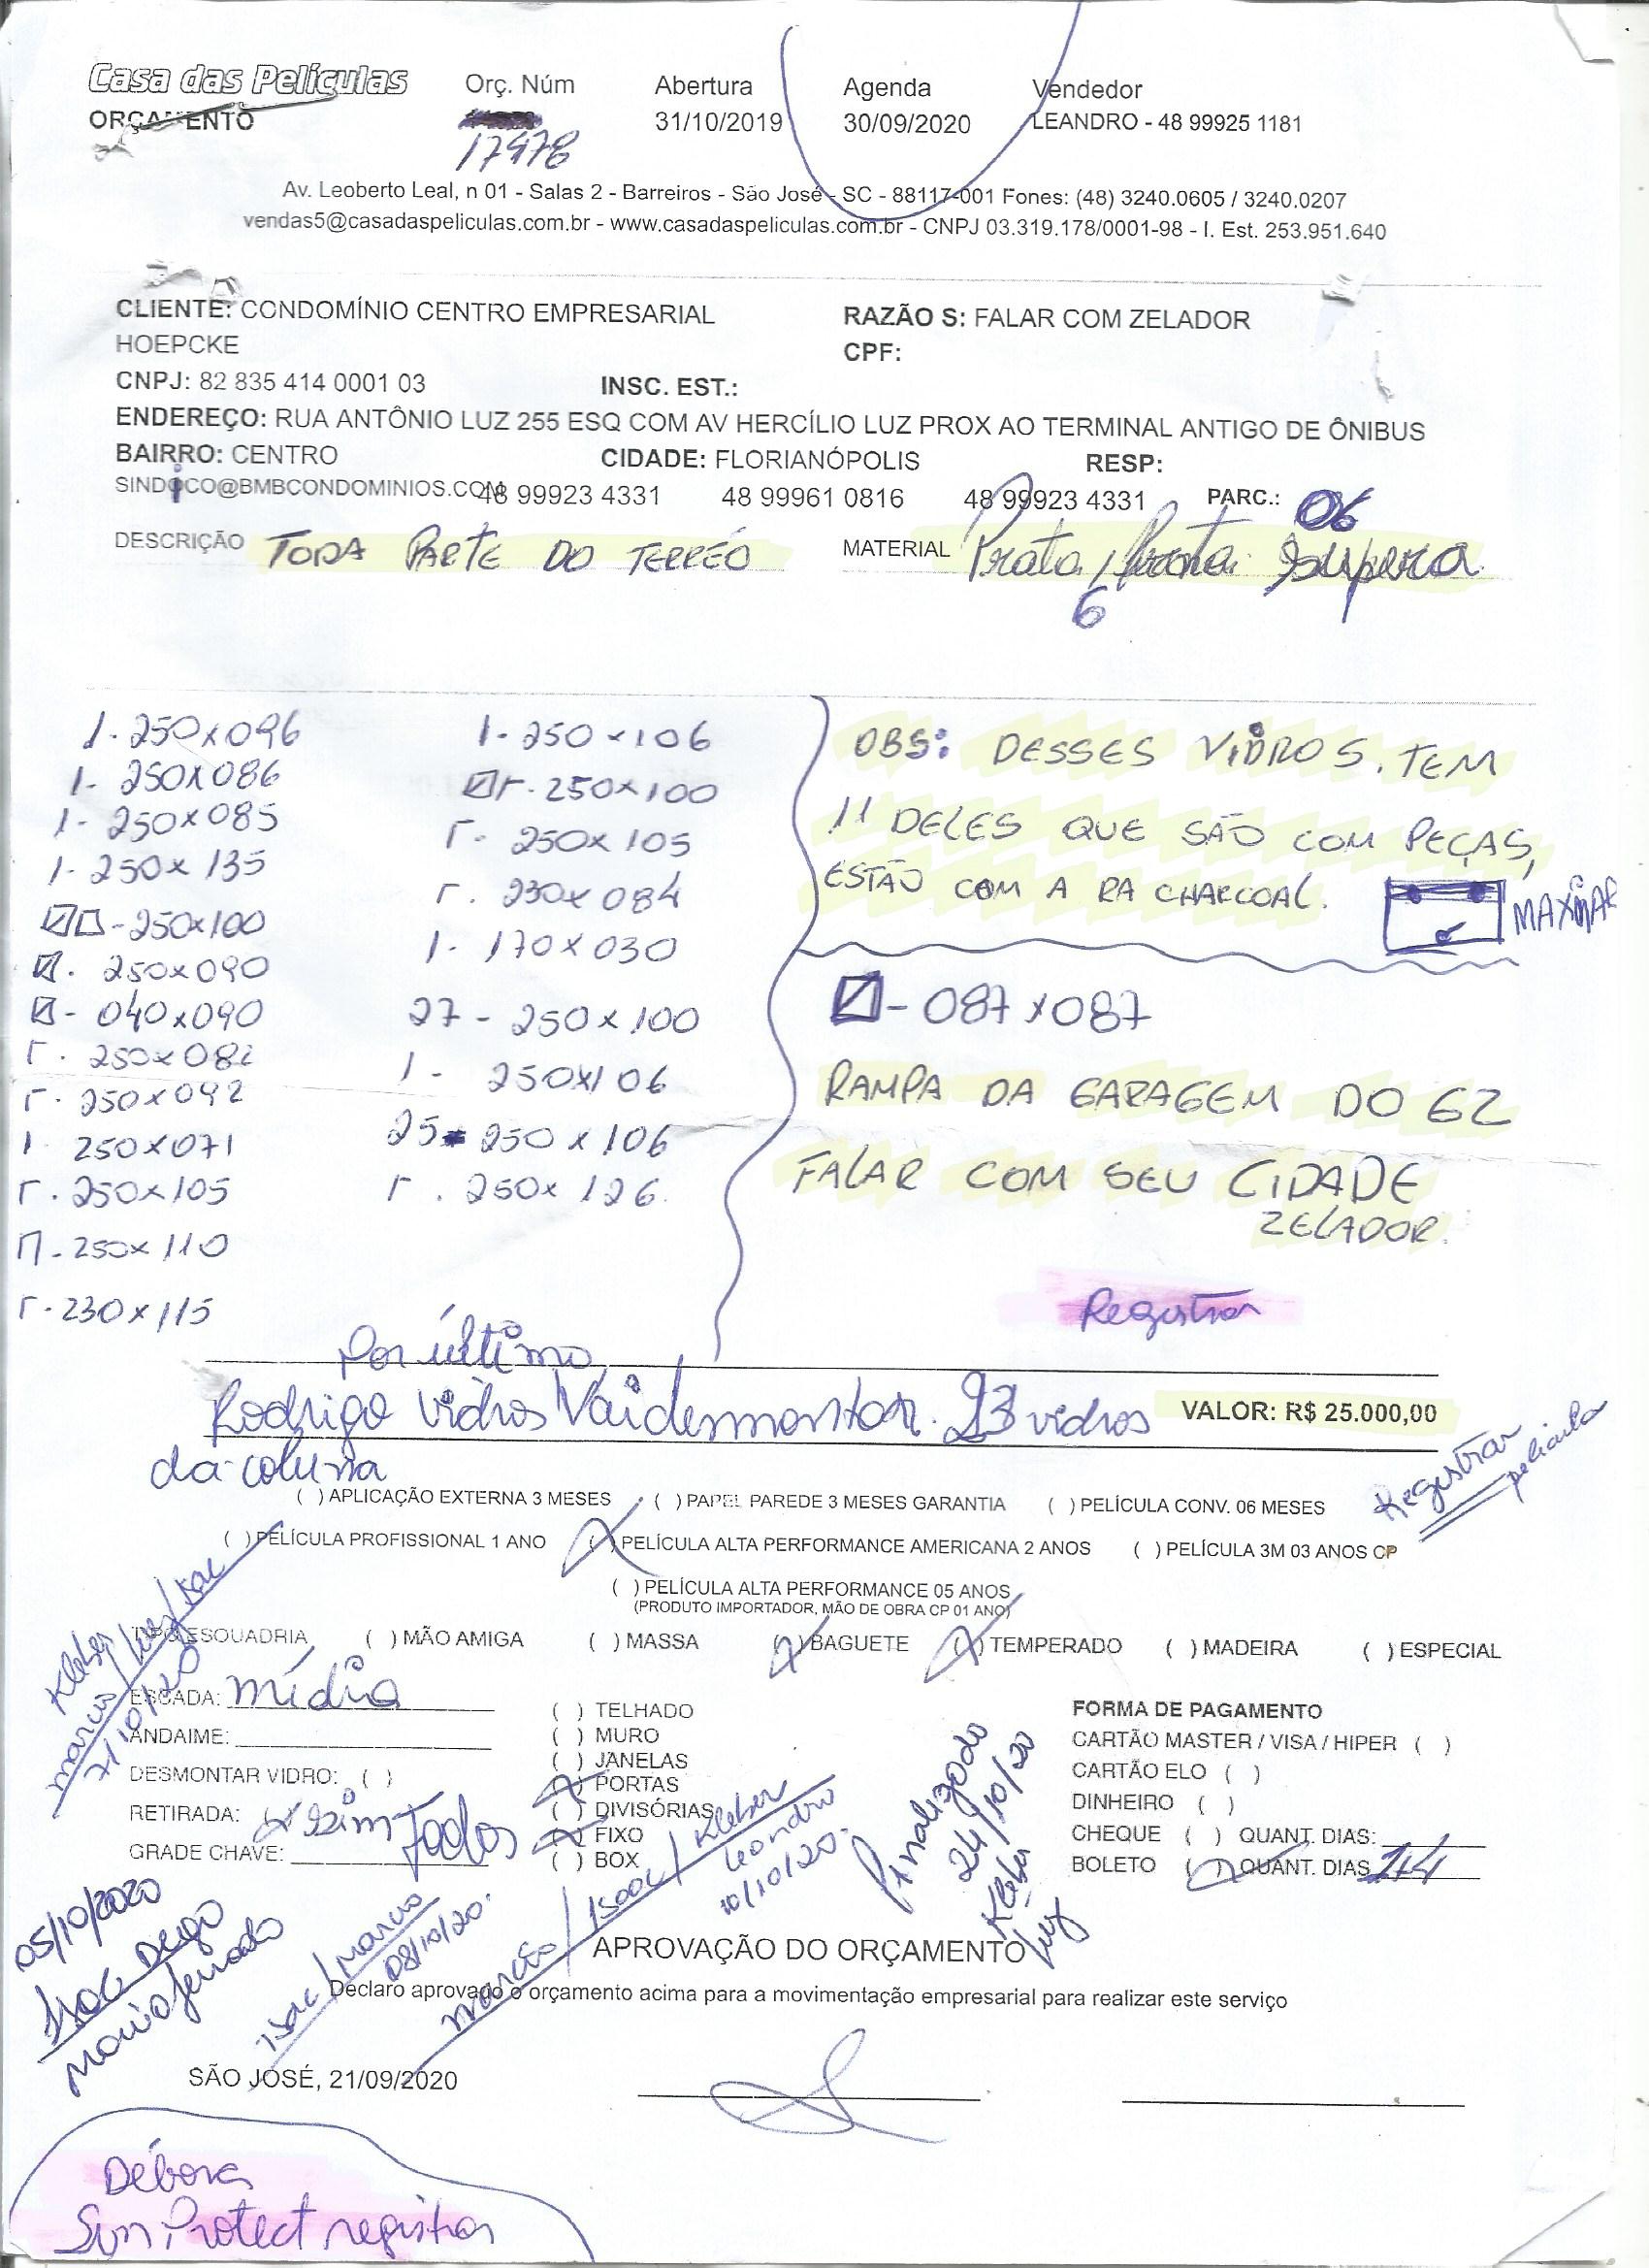 Casa das Películas
ORÇAMENTO
Orç. Núm
17978
Abertura
31/10/2019
Agenda
30/09/2020
Vendedor
LEANDRO - 48 99925 1181
Av. Leoberto Leal, n 01 - Salas 2 - Barreiros - São José - SC - 88117-001 Fones: (48) 3240.0605 / 3240.0207
vendas5@casadaspeliculas.com.br - www.casadaspeliculas.com.br - CNPJ 03.319.178/0001-98 - I. Est. 253.951.640
CLIENTE: CONDOMÍNIO CENTRO EMPRESARIAL
HOEPCKE
RAZÃO S: FALAR COM ZELADOR
CPF:
CNPJ: 82 835 414 0001 03 INSC. EST.:
ENDEREÇO: RUA ANTÔNIO LUZ 255 ESQ COM AV HERCÍLIO LUZ PROX AO TERMINAL ANTIGO DE ÔNIBUS
BAIRRO: CENTRO CIDADE: FLORIANÓPOLIS RESP:
SINDICO@BMBCONDOMINIOS.COM 48 99923 4331 48 99961 0816 48 99923 4331 PARC.: 06
DESCRIÇÃO TODA PARTE DO TERREO
MATERIAL Prata / Supera
6
1-250x096
1-250x086
1-250x085
1-250x135
-250x100
250x090
- 040x090
250x082
250x092
1 250x071
250x105
-250x110
230x115
1-250x106
250x100
250x105
230x084
1-170x030
27-250x100
1-250x106
25 250x106
250x126
OBS: DESSES VIDROS, TEM
11 DELES QUE SÃO COM PEÇAS,
ESTÃO COM A RA CHARCOAL.
MAXIMAR
- 087x087
RAMPA DA GARAGEM DO G2
FALAR COM SEU CIDADE
ZELADOR.
Registrar
Por último
Rodrigo vidros Vai desmontar 23 vidros
da coluna
VALOR: R$ 25.000,00
Registrar
pelicula
( ) APLICAÇÃO EXTERNA 3 MESES ( ) PAPEL PAREDE 3 MESES GARANTIA ( ) PELÍCULA CONV. 06 MESES
( ) PELÍCULA PROFISSIONAL 1 ANO ( ) PELÍCULA ALTA PERFORMANCE AMERICANA 2 ANOS ( ) PELÍCULA 3M 03 ANOS CP
( ) PELÍCULA ALTA PERFORMANCE 05 ANOS
(PRODUTO IMPORTADOR, MÃO DE OBRA CP 01 ANO)
TIPO ESQUADRIA ( ) MÃO AMIGA ( ) MASSA ( ) BAGUETE ( ) TEMPERADO ( ) MADEIRA ( ) ESPECIAL
Kleber
marcus / luiz / Isac
7/10/20
ESCADA: média
ANDAIME:
DESMONTAR VIDRO: ( )
RETIRADA: ( ) sim Todos
GRADE CHAVE:
( ) TELHADO
( ) MURO
( ) JANELAS
( ) PORTAS
( ) DIVISÓRIAS
( ) FIXO
( ) BOX
FORMA DE PAGAMENTO
CARTÃO MASTER / VISA / HIPER ( )
CARTÃO ELO ( )
DINHEIRO ( )
CHEQUE ( ) QUANT. DIAS:
BOLETO ( ) QUANT. DIAS 14
Finalizado
24/10/20
Kleber
luiz
05/10/2020
Isac
Isac / marcus
08/10/20
marcão / Isaac / Kleber
leandro
10/10/20
APROVAÇÃO DO ORÇAMENTO
Declaro aprovado o orçamento acima para a movimentação empresarial para realizar este serviço
SÃO JOSÉ, 21/09/2020
Débora
Sun Protect registrar